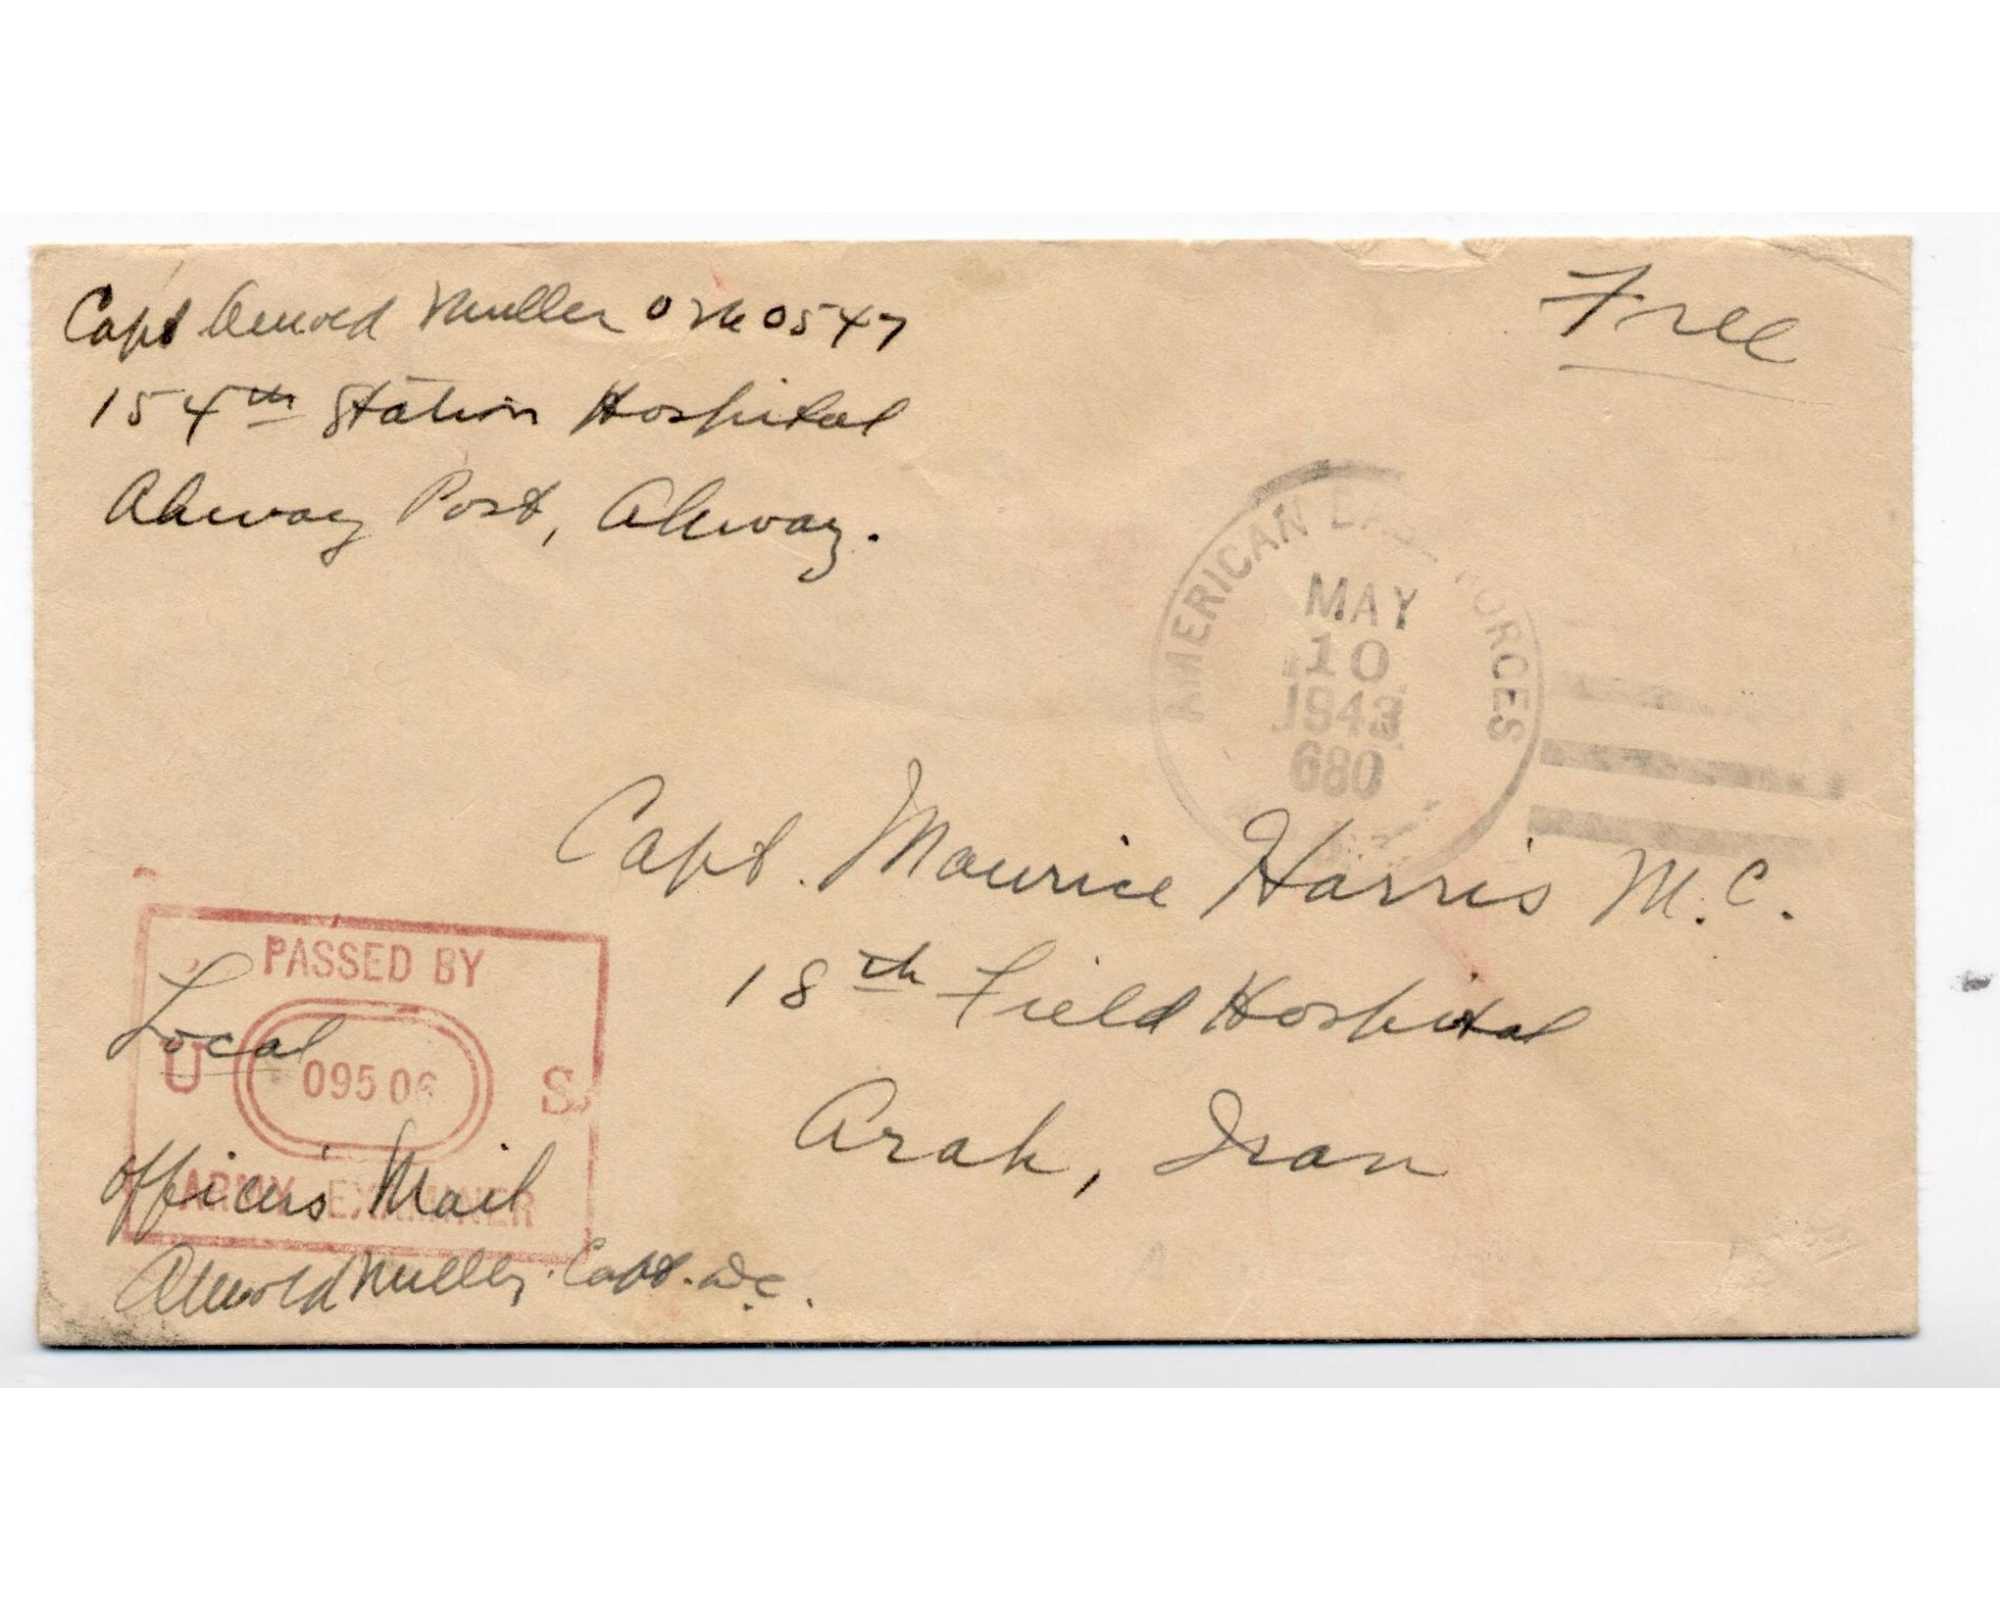 Capt Arnold Muller 0
154th Station Hospital
Ahwaz Post, Ahwaz.
Free
AMERICAN BASE FORCES
MAY
10
1943
680
Capt. Maurice Harris M.C.
18th Field Hospital
Arak, Iran
PASSED BY
Local
U 09506 S
Officer's Mail
ARMY EXAMINER
Arnold Muller, Capt. D.C.